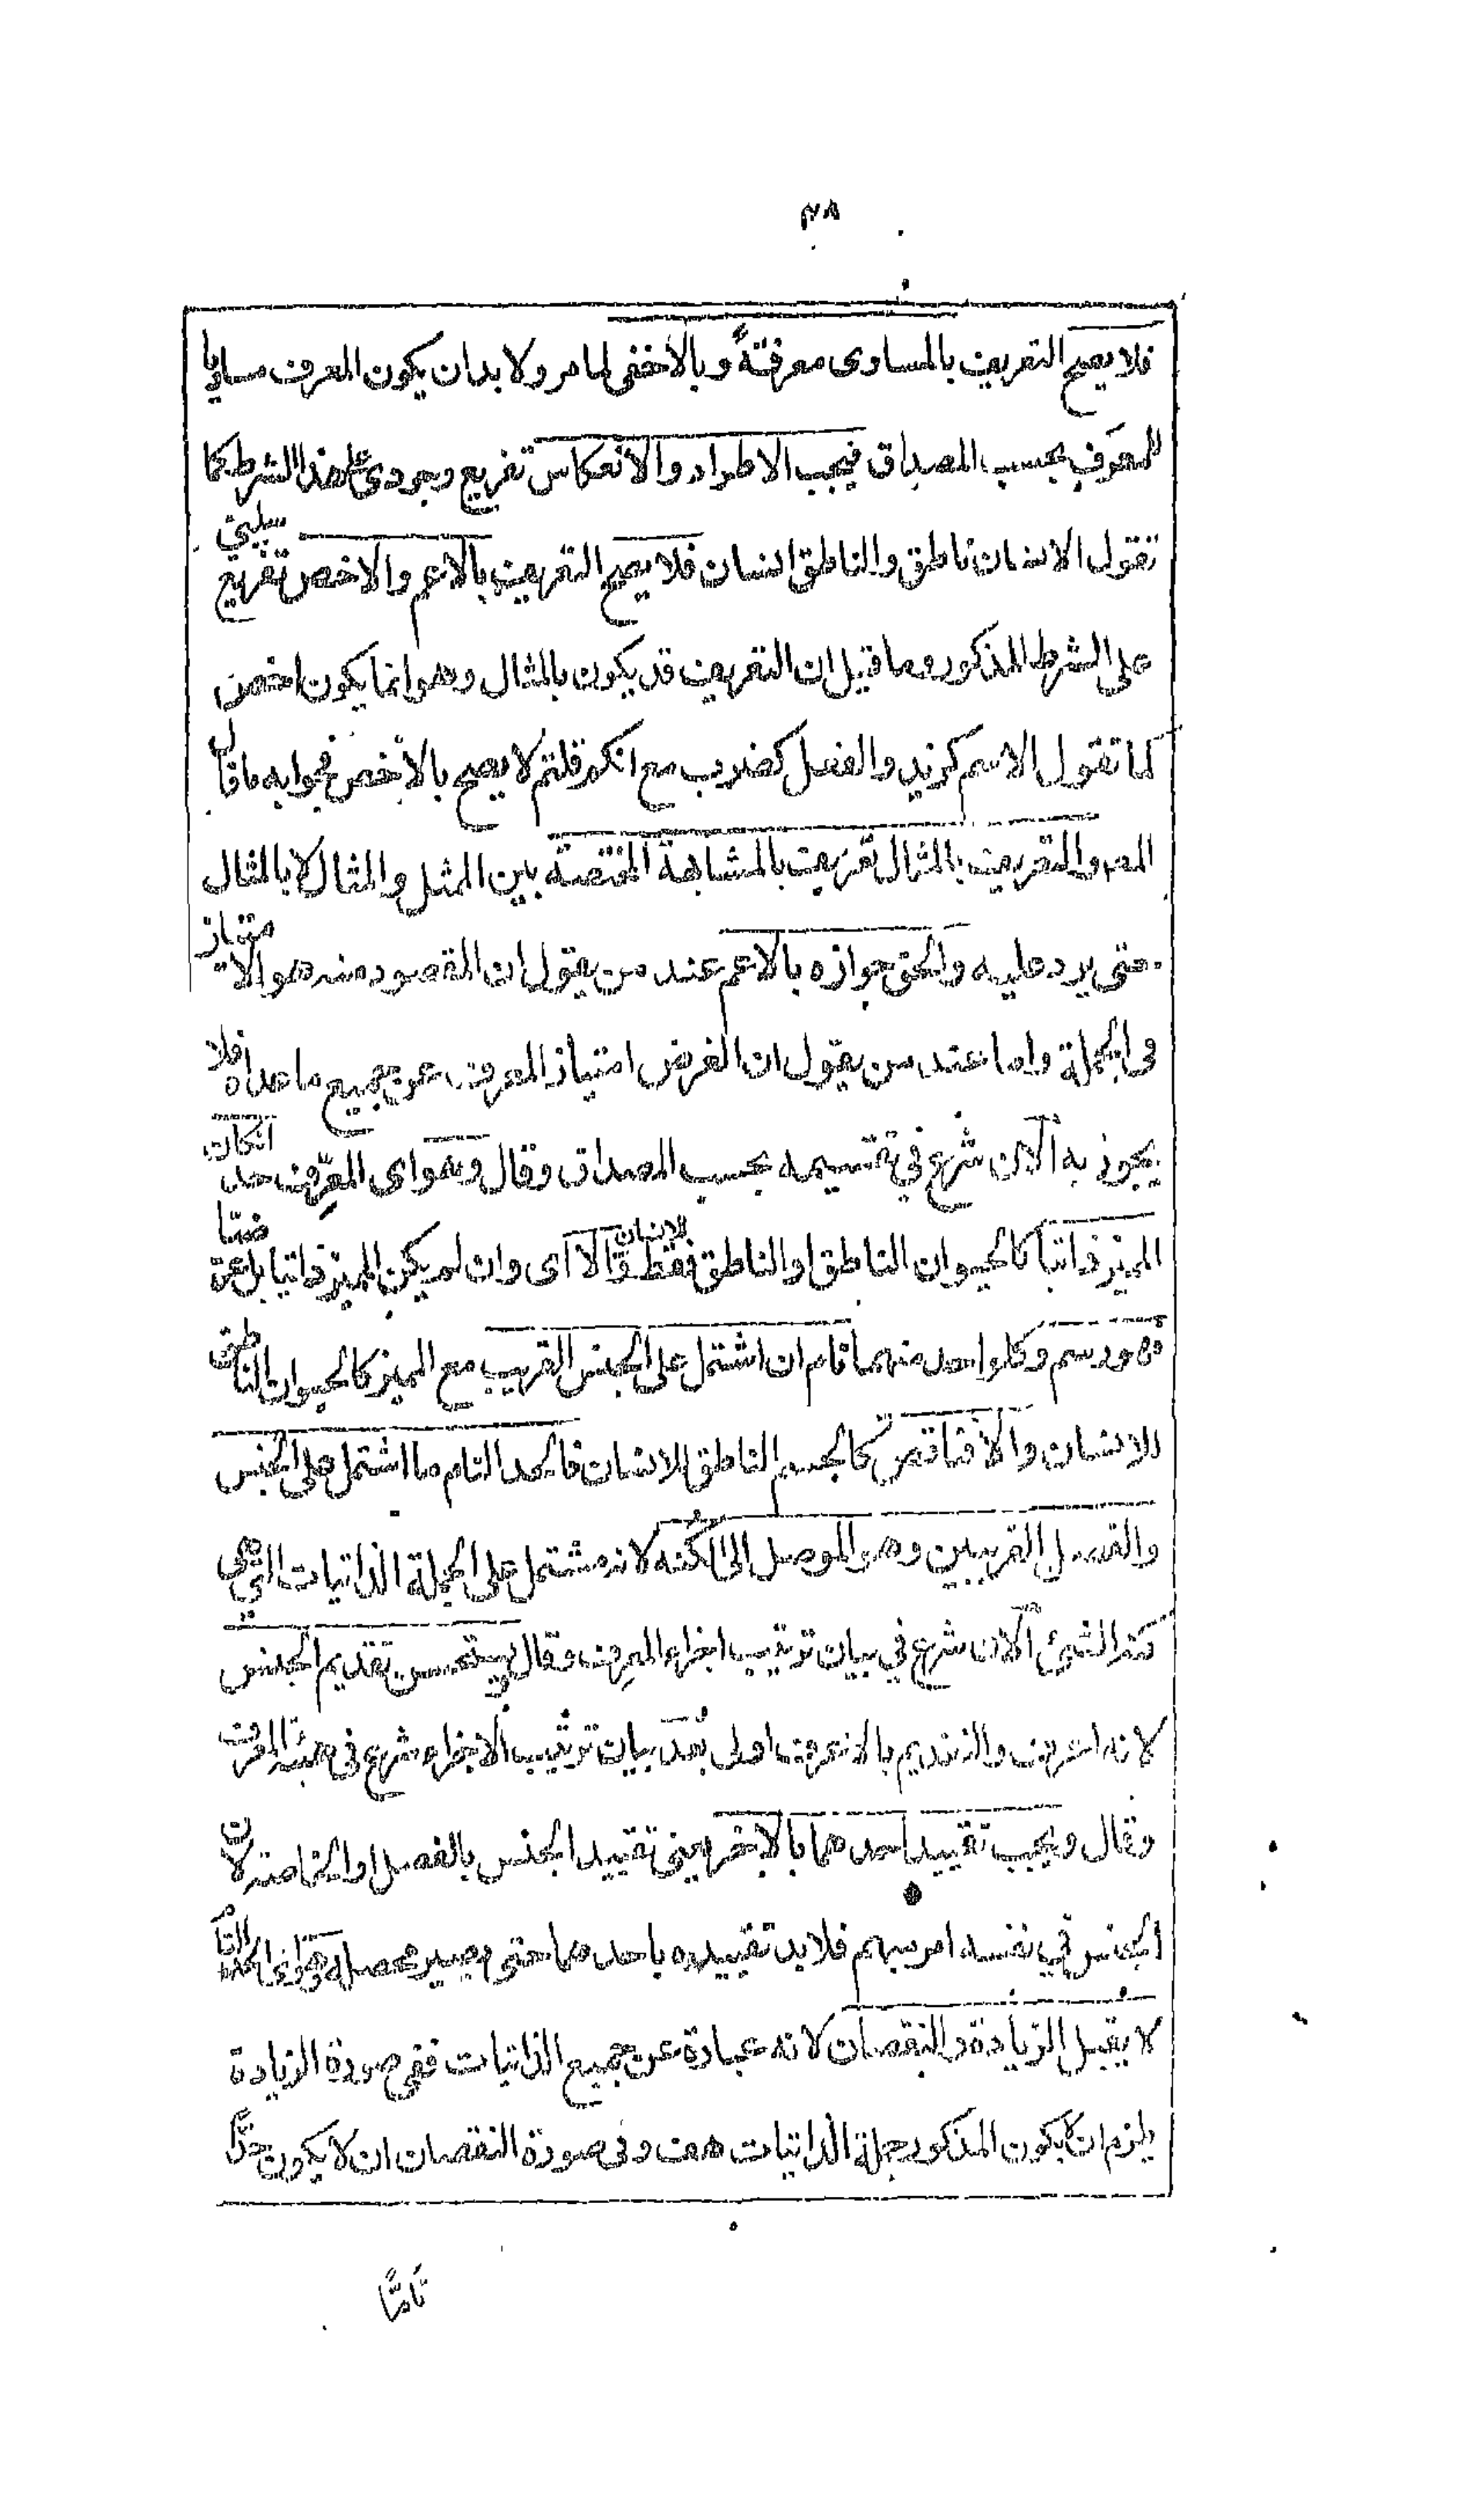 ٣٨
فلا يصح التعريف بالمساوى معرفتةً وبالأخفى لما مر ولا بد ان يكون المعرف مساويا
للمعرَف بحسب المصداق فيجب الاطراد والانعكاس تفريع وجودى على هذا الشرط كما
تقول الانسان ناطق والناطق انسان فلا يصح التعريف بالاعم والاخص تفريع سلبى
على الشرط المذكور وما قيل ان التعريف قد يكون بالمثال وهو انما يكون اخص
كما تقول الاسم كزيد والفعل كضرب مع انكم قلتم لا يصح بالاخص فجوابه ما قال
المص والتعريف بالمثال تعريف بالمشابهة المختصة بين الممثل والمثال لا بالمثال
حتى يرد عليه والحق جوازه بالاعم عند من يقول ان المقصود منه هو الامتياز
فى الجملة واما عند من يقول ان الغرض امتياز المعرف عن جميع ما عداه فلا
يجوز به الآن شرع في تقسيمه بحسب المصداق وقال وهو اى المعرِّف حد انكان
المميز ذاتيا كالحيوان الناطق او الناطق فقط للانسان والا اى وان لم يكن المميز ذاتيا بل عرضيا
فهو رسم وكل واحد منهما تام ان اشتمل على الجنس القريب مع المميز كالحيوان الناطق
للانسان والا فناقص كالجسم الناطق للانسان فالحد التام ما اشتمل على الجنس
والفصل القريبين وهو الموصل الى الكنه لانه مشتمل على الجملة الذاتيات التى هى
كنه الشئ الآن شرع في بيان ترتيب اجزاء المعرِف وقال ويستحسن تقديم الجنس
لانه اعرف والتقديم بالاعرف اولى بعد بيان ترتيب الاجزاء شرع فى المعرف
وقال ويجب تقييد احدهما بالاخر يعنى تقييد الجنس بالفصل او الخاصة لان
الجنس في نفسه امر مبهم فلا بد تقييده باحدهما حتى يصير محصلا وهو اى الحد التام
لا يقبل الزيادة والنقصان لانه عبارة عن جميع الذاتيات ففى صورة الزيادة
يلزم ان لا يكون المذكور جملة الذاتيات هف وفى صورة النقصان ان لا يكون حدًا
تامًا